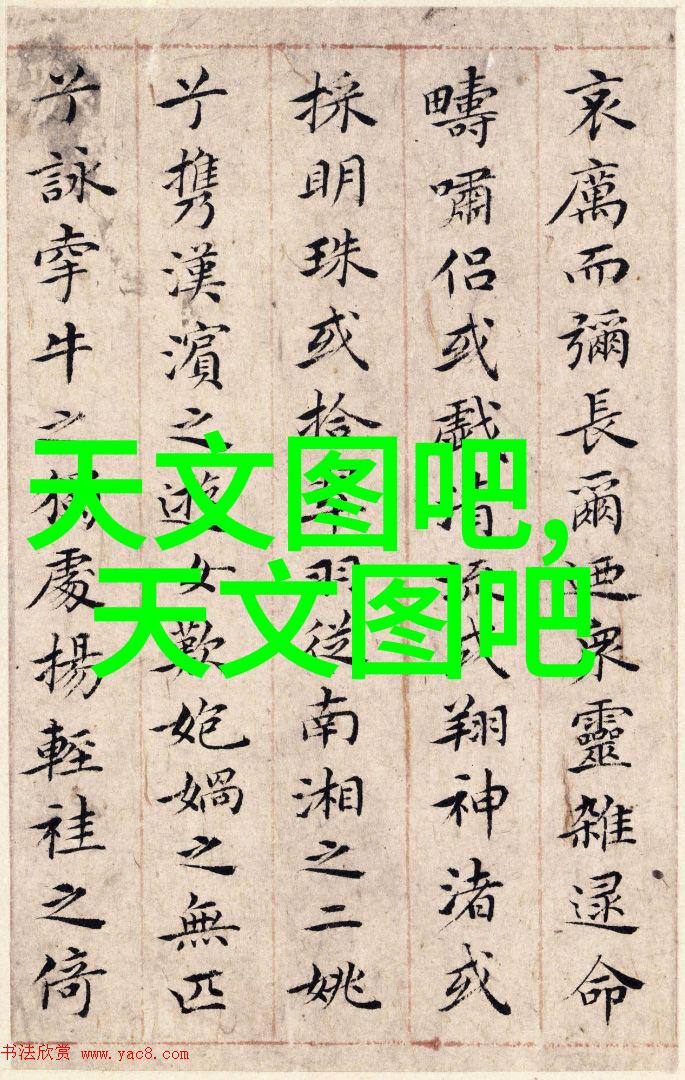 哀厲而彌長爾迺衆靈雜遝命
疇嘯侶或戲清流或翔神渚或
採明珠或拾翠羽從南湘之二姚
兮携漢濱之遊女歎媧之無匹
兮詠牽牛之獨處揚輕袿之倚
天文图吧,
天文图吧
书法欣赏 www.yac8.com